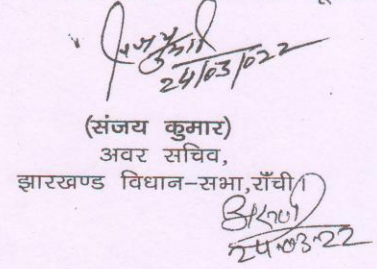 संजय कुमार
24/03/022
(संजय कुमार)
अवर सचिव,
झारखण्ड विधान-सभा,राँची।
24-03-22